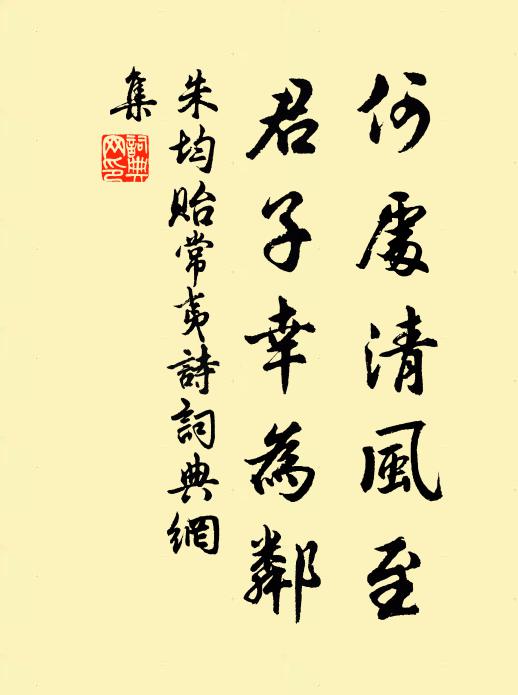 何處清風至
君子幸為鄰
朱均貽常夷詩詞典網
集
詞典
網印